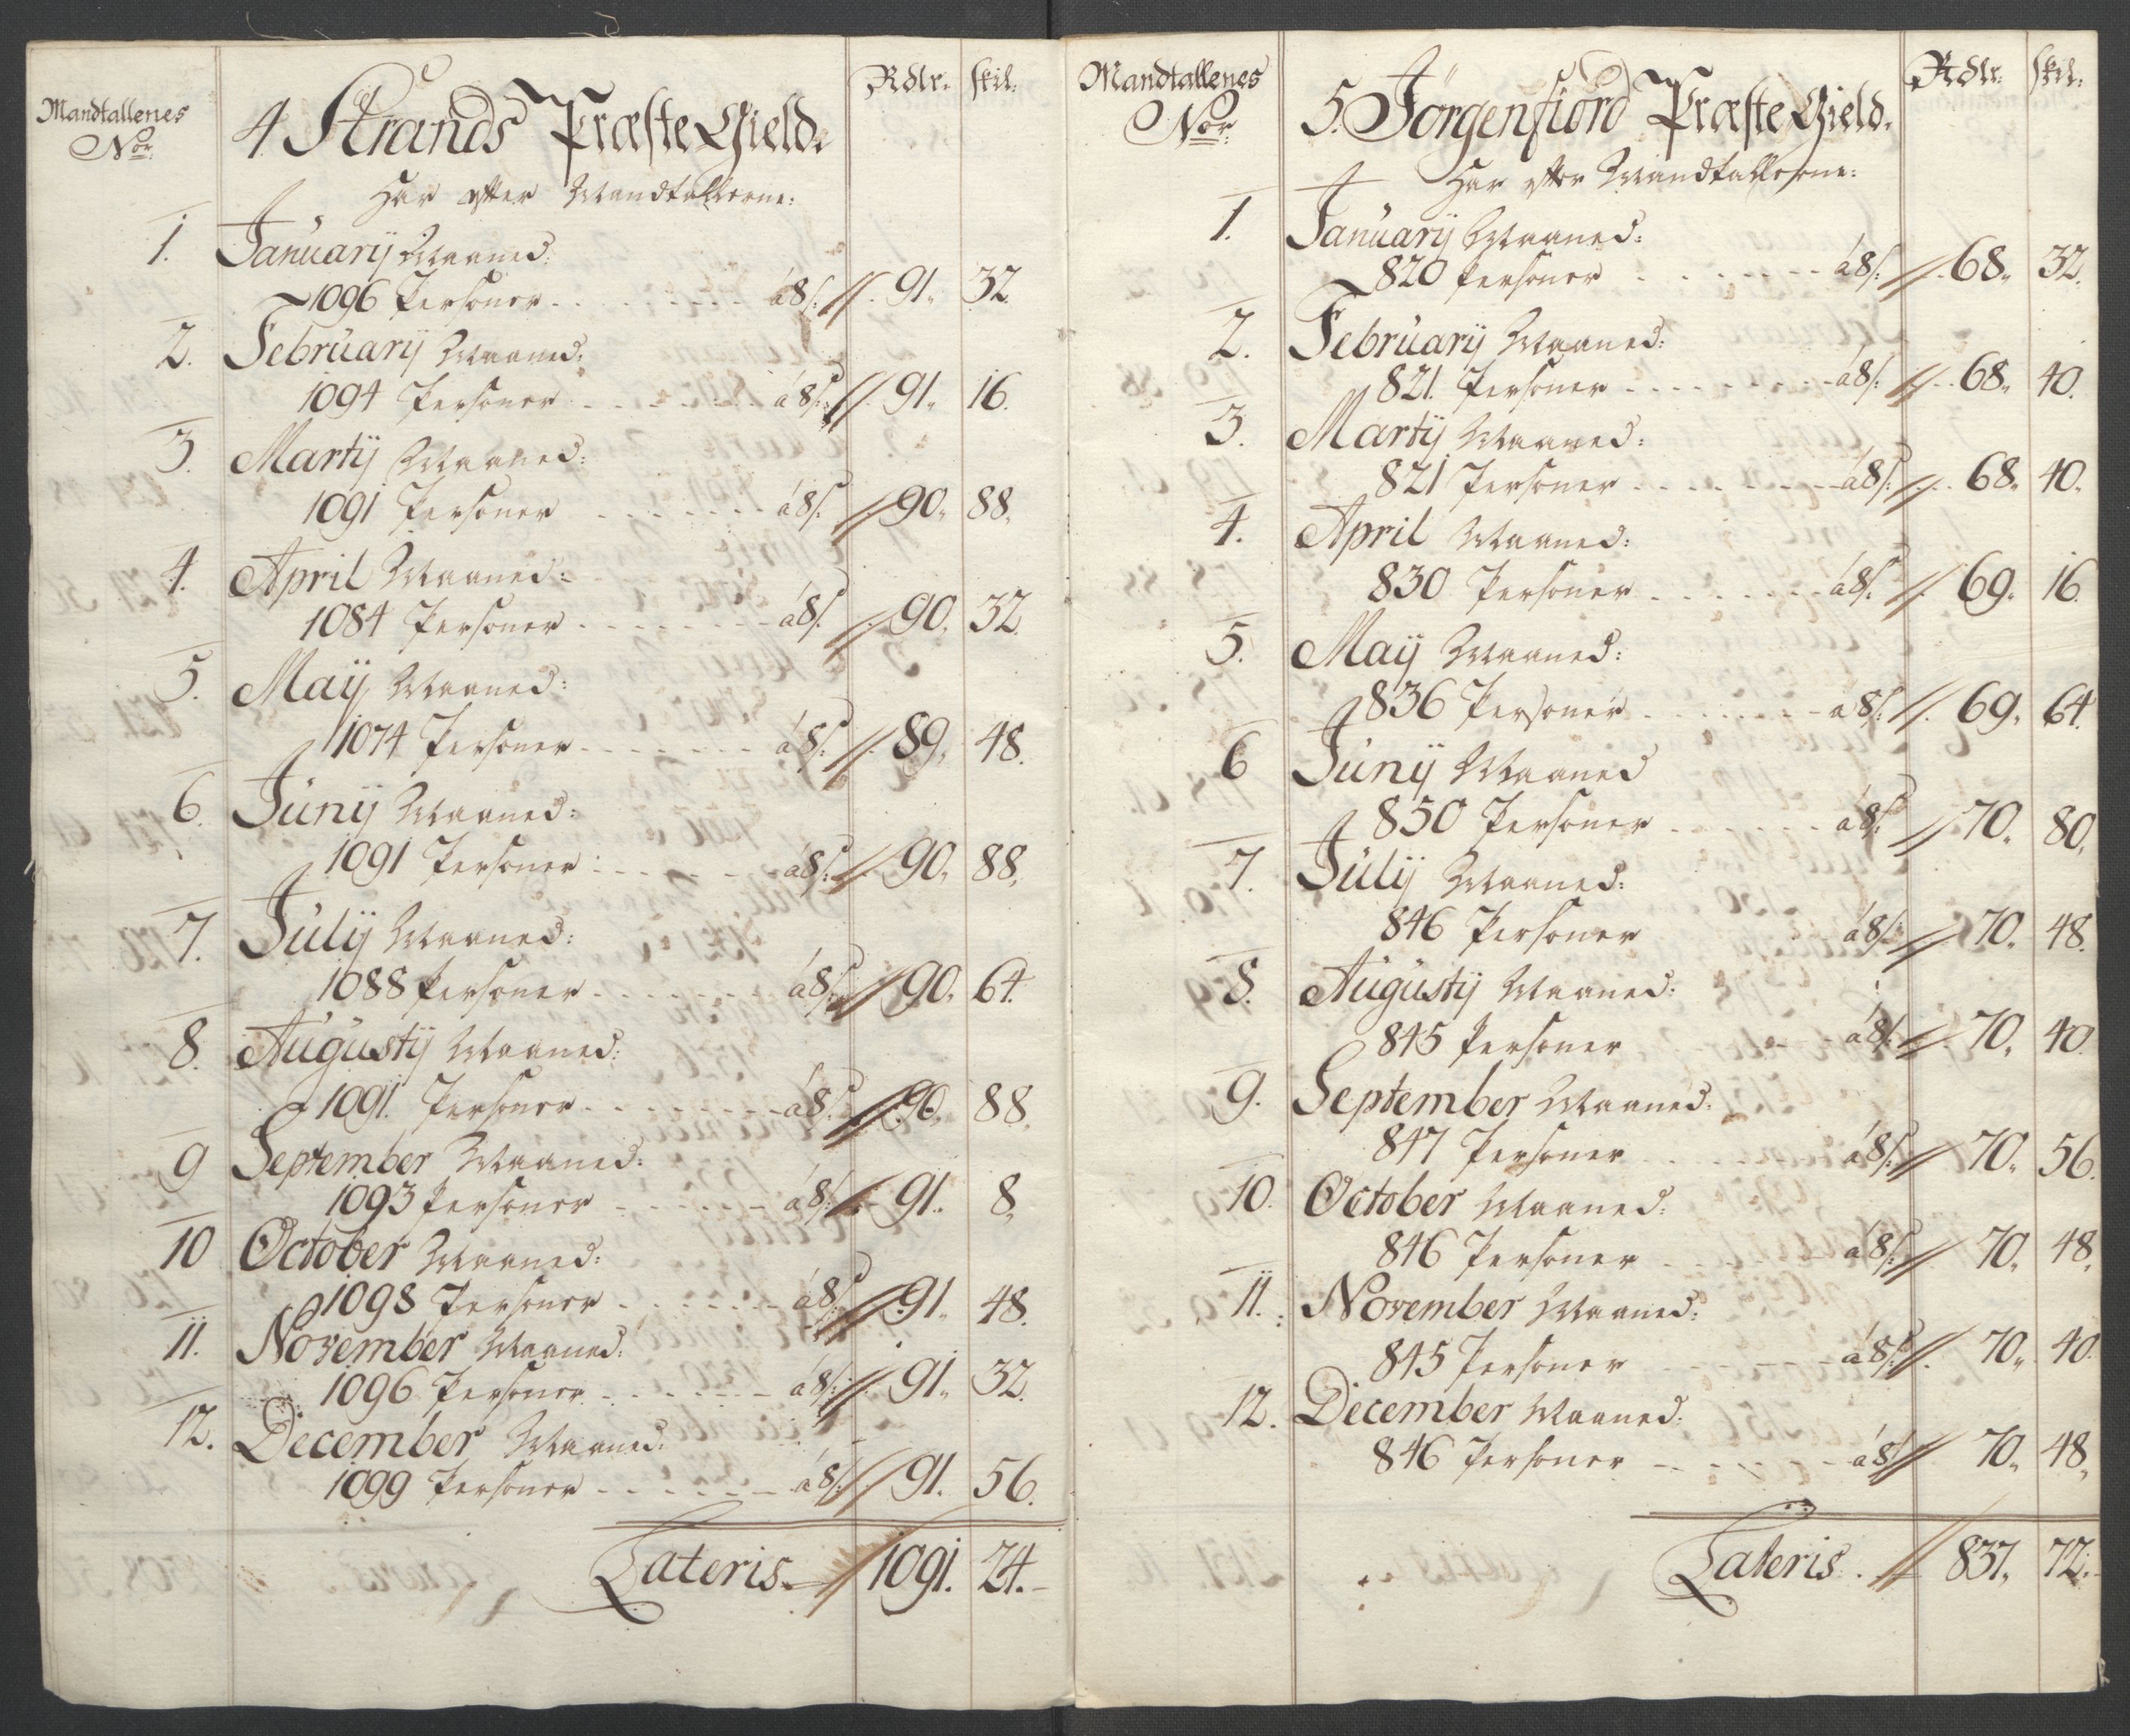 Mandtallenes
Nor:
4 Strands Præste Gield.
Rdlr. skil:
Har efter Mandtallerne:
1. Januarij Maaned:
1096 Personer - - - - - - - á 8 s: 91„ 32.
2. Februarij Maaned:
1094 Personer - - - - - - - á 8 s: 91„ 16.
3. Martij Maaned:
1091 Personer - - - - - - - á 8 s. 90„ 88„
4. April Maaned:
1084 Personer - - - - - - - á 8 s. 90. 32.
5. Maij Maaned:
1074 Personer - - - - - - - á 8 s: 89„ 48.
6. Junij Maaned:
1091 Personer - - - - - - - á 8 s: 90„ 88„
7. Julij Maaned:
1088 Personer - - - - - - - á 8 s: 90„ 64.
8. Augustij Maaned:
1091. Personer - - - - - - - á 8 s. 90„ 88„
9 September Maaned:
1093 Personer - - - - - - - á 8 s: 91„ 8„
10 October Maaned:
1098 Personer - - - - - - - á 8 s. 91„ 48.
11. November Maaned:
1096 Personer - - - - - - - á 8 s: 91„ 32.
12. December Maaned:
1099 Personer - - - - - - - á 8 s: 91. 56.
Lateris. 1091. 24.-
Mandtallenes
Nor:
5. Jörgenfiord Præste Gield.
Rdlr: skil:
Har efter Mandtallerne:
1. Januarij Maaned:
820 Personer - - - - - - - á 8 s: 68„ 32.
2. Februarij Maaned:
821. Personer - - - - - - - á 8 s: 68„ 40.
3. Martij Maaned:
821 Personer - - - - - - - á 8 s: 68„ 40„
4. April Maaned:
830 Personer - - - - - - - á 8 s. 69. 16.
5. Maij Maaned:
836 Personer - - - - - - - á 8 s: 69„ 64.
6 Junij Maaned
850 Personer - - - - - - - á 8 s. 70„ 80„
7. Julij Maaned:
846 Personer á 8 s: 70„ 48.
8. Augustij Maaned:
845 Personer - - á 8 s: 70„ 40.
9. September Maaned:
847 Personer - - - - - á 8 s: 70„ 56.
10. October Maaned:
846 Personer - - - - - á 8 s: 70„ 48„
11. November Maaned:
845 Personer - - - - - á 8 s: 70„ 40.
12. December Maaned:
846 Personer - - - - - á 8 s 70„ 48„
Lateris. 837„ 72.-